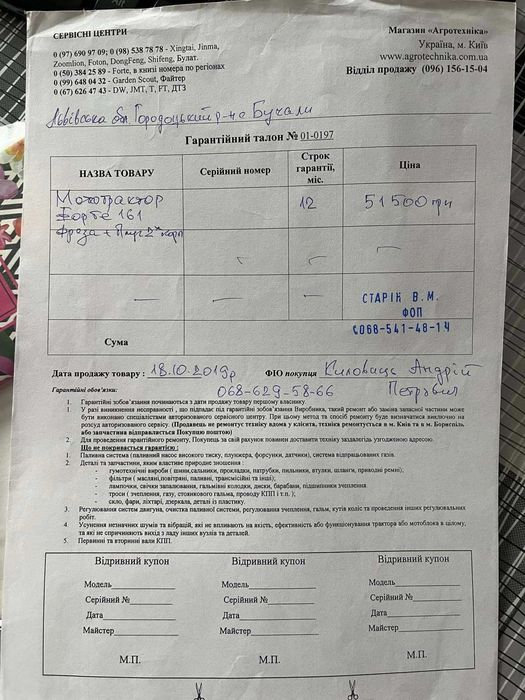 СЕРВІСНІ ЦЕНТРИ
0 (97) 690 97 09; 0 (98) 538 78 78 - Xingtai, Jinma,
Zoomlion, Foton, DongFeng, Shifeng, Булат.
0 (50) 384 25 89 - Forte, в книзі номера по регіонах
0 (99) 648 04 32 - Garden Scout, Файтер
0 (67) 626 47 43 - DW, JMT, T, FT, ДТЗ
Магазин «Агротехніка»
Україна, м. Київ
www.agrotechnika.com.ua
Відділ продажу (096) 156-15-04
Львівська обл. Городоцький р-н с Бучали
Гарантійний талон № 01-0197
НАЗВА ТОВАРУ Серійний номер Строк гарантії, міс. Ціна
Мототрактор
Форте 161 12 51500 грн
фреза + плуг 2х корп
СТАРІК В.М.
ФОП
068-541-48-14
Сума
Дата продажу товару : 18.10.2019р ФІО покупця Андрій
068-629-58-66 Петрович
Гарантійні обов'язки:
1. Гарантійні зобов'язання починаються з дати продажу товару першому власнику.
1. У разі виникнення несправності , що підпадає під гарантійні зобов'язання Виробника, такий ремонт або заміна запасної частини може
бути виконано спеціалістами авторизованого сервісного центру. При цьому та спосіб ремонту буде визначатись виключно на
розсуд авторизованого сервісу. (Продавець не ремонтує техніку вдома у клієнта, техніка ремонтується в м. Київ та в м. Бориспіль,
або запчастина відправляється Покупцю поштою)
2. Для проведення гарантійного ремонту, Покупець за свій рахунок повинен доставити техніку заздалегідь узгодженою адресою.
Що не покривається гарантією :
1. Паливна система (паливний насос високого тиску, плунжера, форсунки, датчики), система відпрацьованих газів.
2. Деталі та запчастини, яким властиве природне зношення :
- гумотехнічні вироби ( шини,сальники, прокладки, патрубки, пильники, втулки, шланги, приводні ремні);
- фільтра ( масляні,повітряні, паливні, трансмісійні та інші);
- лампочки, свічки запалювання, гальмівні колодки, диски, барабани, підшипники зчеплення.
- троси ( зчеплення, газу, стоянкового гальма, проводу КПП і т.п. );
- скло, фари, ліхтарі, дзеркала, деталі із пластику.
3. Регулювання систем двигуна, очистка паливної системи, регулювання зчеплення, гальм, кутів коліс та проведення інших регулювальних
робіт.
4. Усунення незначних шумів та вібрацій, які не впливають на якість, ефективність або функціонування трактора або мотоблока в цілому,
та які не спричиняють вихід з ладу інших вузлів та деталей.
5. Первинні та вторинні вали КПП.
Відривний купон Відривний купон Відривний купон
Модель Модель Модель
Серійний № Серійний № Серійний №
Дата Дата Дата
Майстер Майстер Майстер
М.П. М.П. М.П.